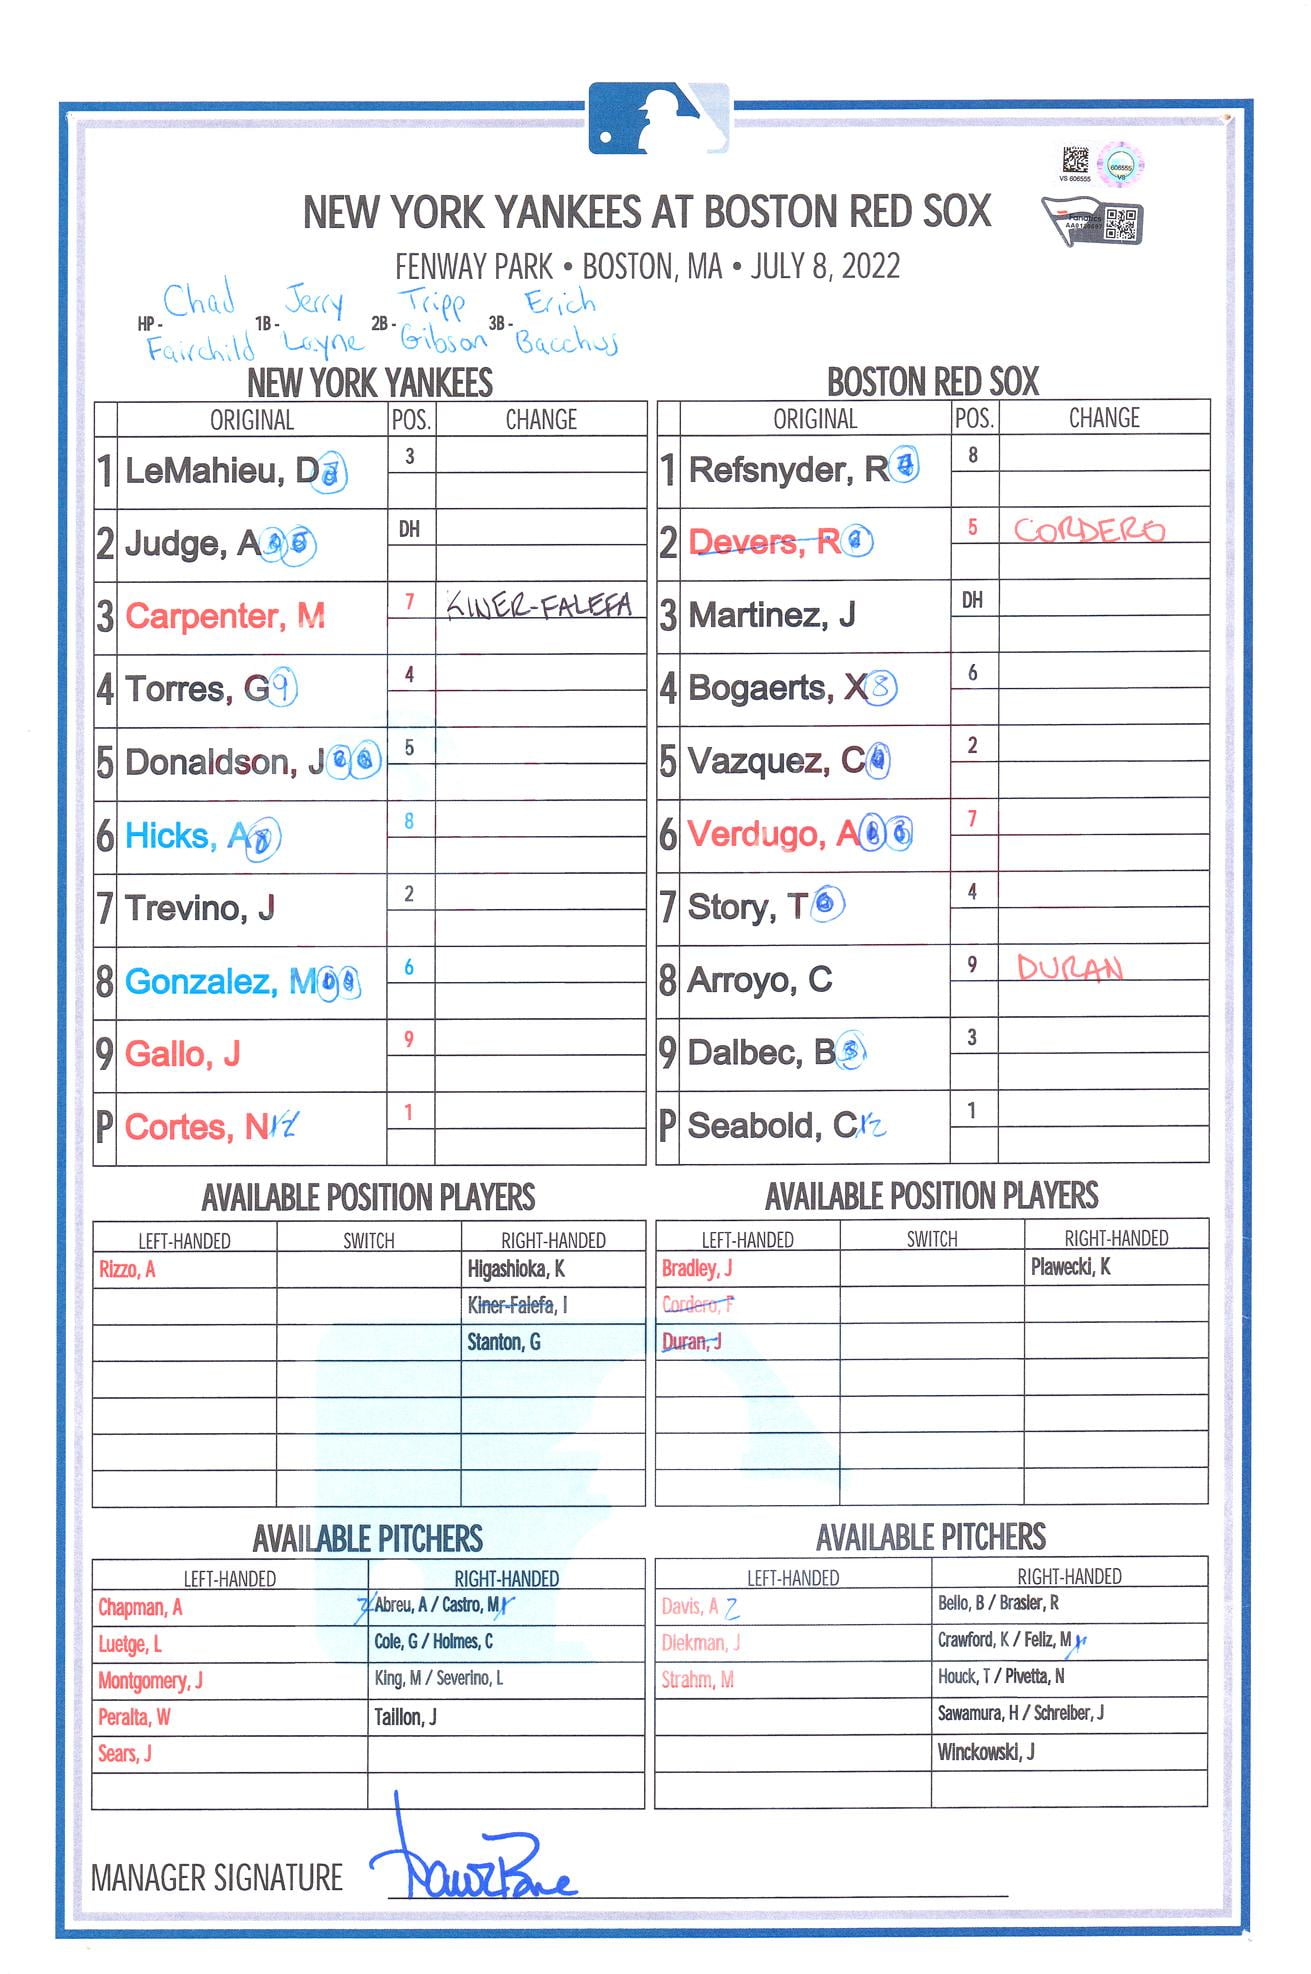 606555
VS 606555
VS
Fanatics
NEW YORK YANKEES AT BOSTON RED SOX
FENWAY PARK • BOSTON, MA • JULY 8, 2022
HP- Chad Fairchild 1B- Jerry Layne 2B- Tripp Gibson 3B- Erich Bacchus
NEW YORK YANKEES
ORIGINAL POS. CHANGE
1 LeMahieu, D 3
2 Judge, A DH
3 Carpenter, M 7 KINER-FALEFA
4 Torres, G 9 4
5 Donaldson, J 5
6 Hicks, A 8
7 Trevino, J 2
8 Gonzalez, M 6
9 Gallo, J 9
P Cortes, N 1
BOSTON RED SOX
ORIGINAL POS. CHANGE
1 Refsnyder, R 8
2 Devers, R 5 CORDERO
3 Martinez, J DH
4 Bogaerts, X 8 6
5 Vazquez, C 2
6 Verdugo, A 7
7 Story, T 4
8 Arroyo, C 9 DURAN
9 Dalbec, B 3
P Seabold, C 1
AVAILABLE POSITION PLAYERS
LEFT-HANDED SWITCH RIGHT-HANDED
Rizzo, A Higashioka, K
Kiner-Falefa, I
Stanton, G
AVAILABLE POSITION PLAYERS
LEFT-HANDED SWITCH RIGHT-HANDED
Bradley, J Plawecki, K
Cordero, F
Duran, J
AVAILABLE PITCHERS
LEFT-HANDED RIGHT-HANDED
Chapman, A Abreu, A / Castro, M
Luetge, L Cole, G / Holmes, C
Montgomery, J King, M / Severino, L
Peralta, W Taillon, J
Sears, J
AVAILABLE PITCHERS
LEFT-HANDED RIGHT-HANDED
Davis, A Bello, B / Brasier, R
Diekman, J Crawford, K / Feliz, M
Strahm, M Houck, T / Pivetta, N
Sawamura, H / Schreiber, J
Winckowski, J
MANAGER SIGNATURE